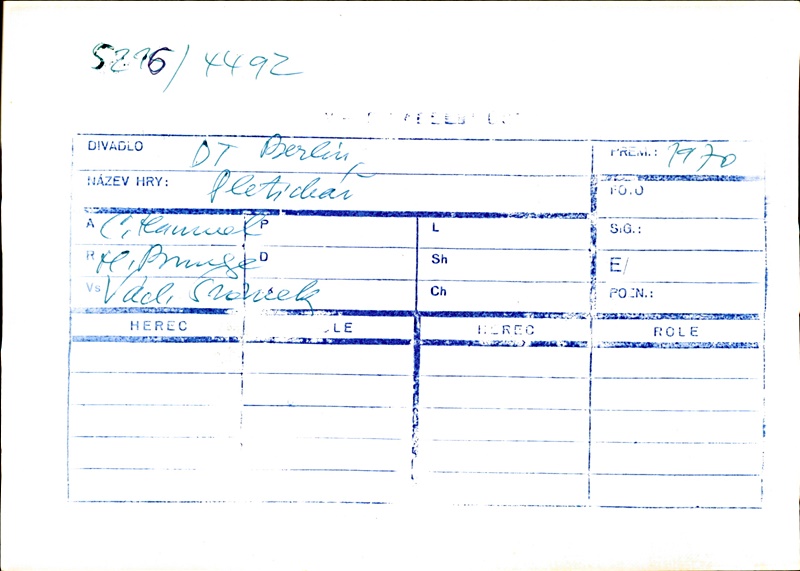 5226/4492
DIVADLO DT Berlin, PREM.: 1970
NÁZEV HRY: Pletichář FOTO
A C. Hammel P L SIG.:
R H. D Sh E/
Vs Ch POZN.:
HEREC ROLE HEREC ROLE